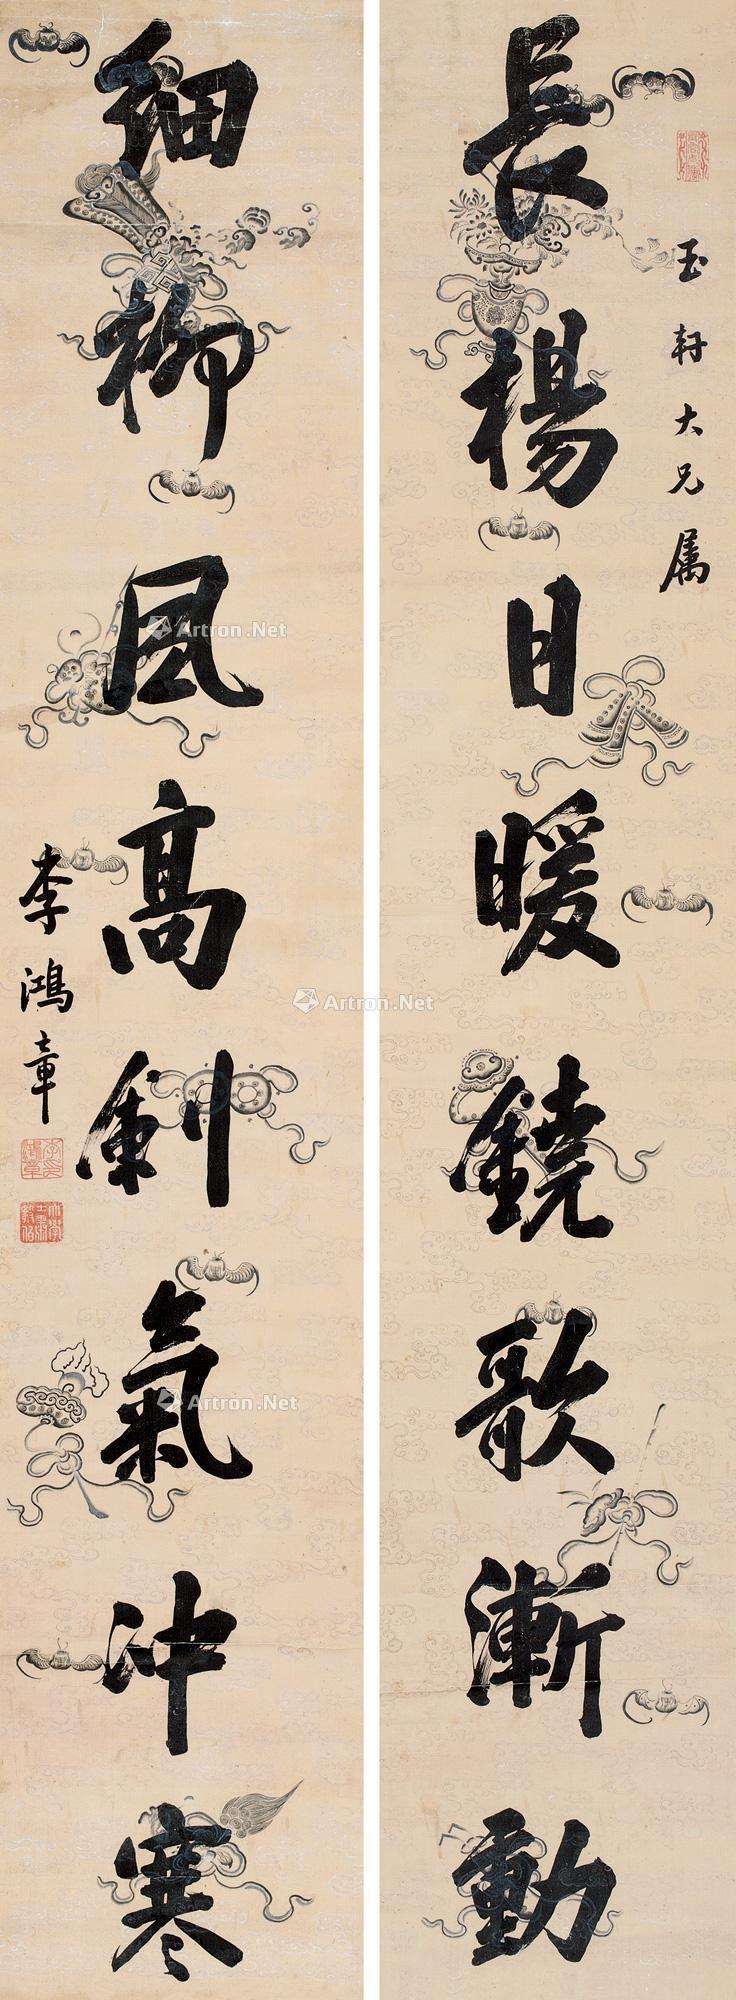 玉軒大兄属
長楊日暖鐃歌漸動
細柳風高劍氣冲寒
李鴻章
Artron.Net
Artron.Net
Artron.Net